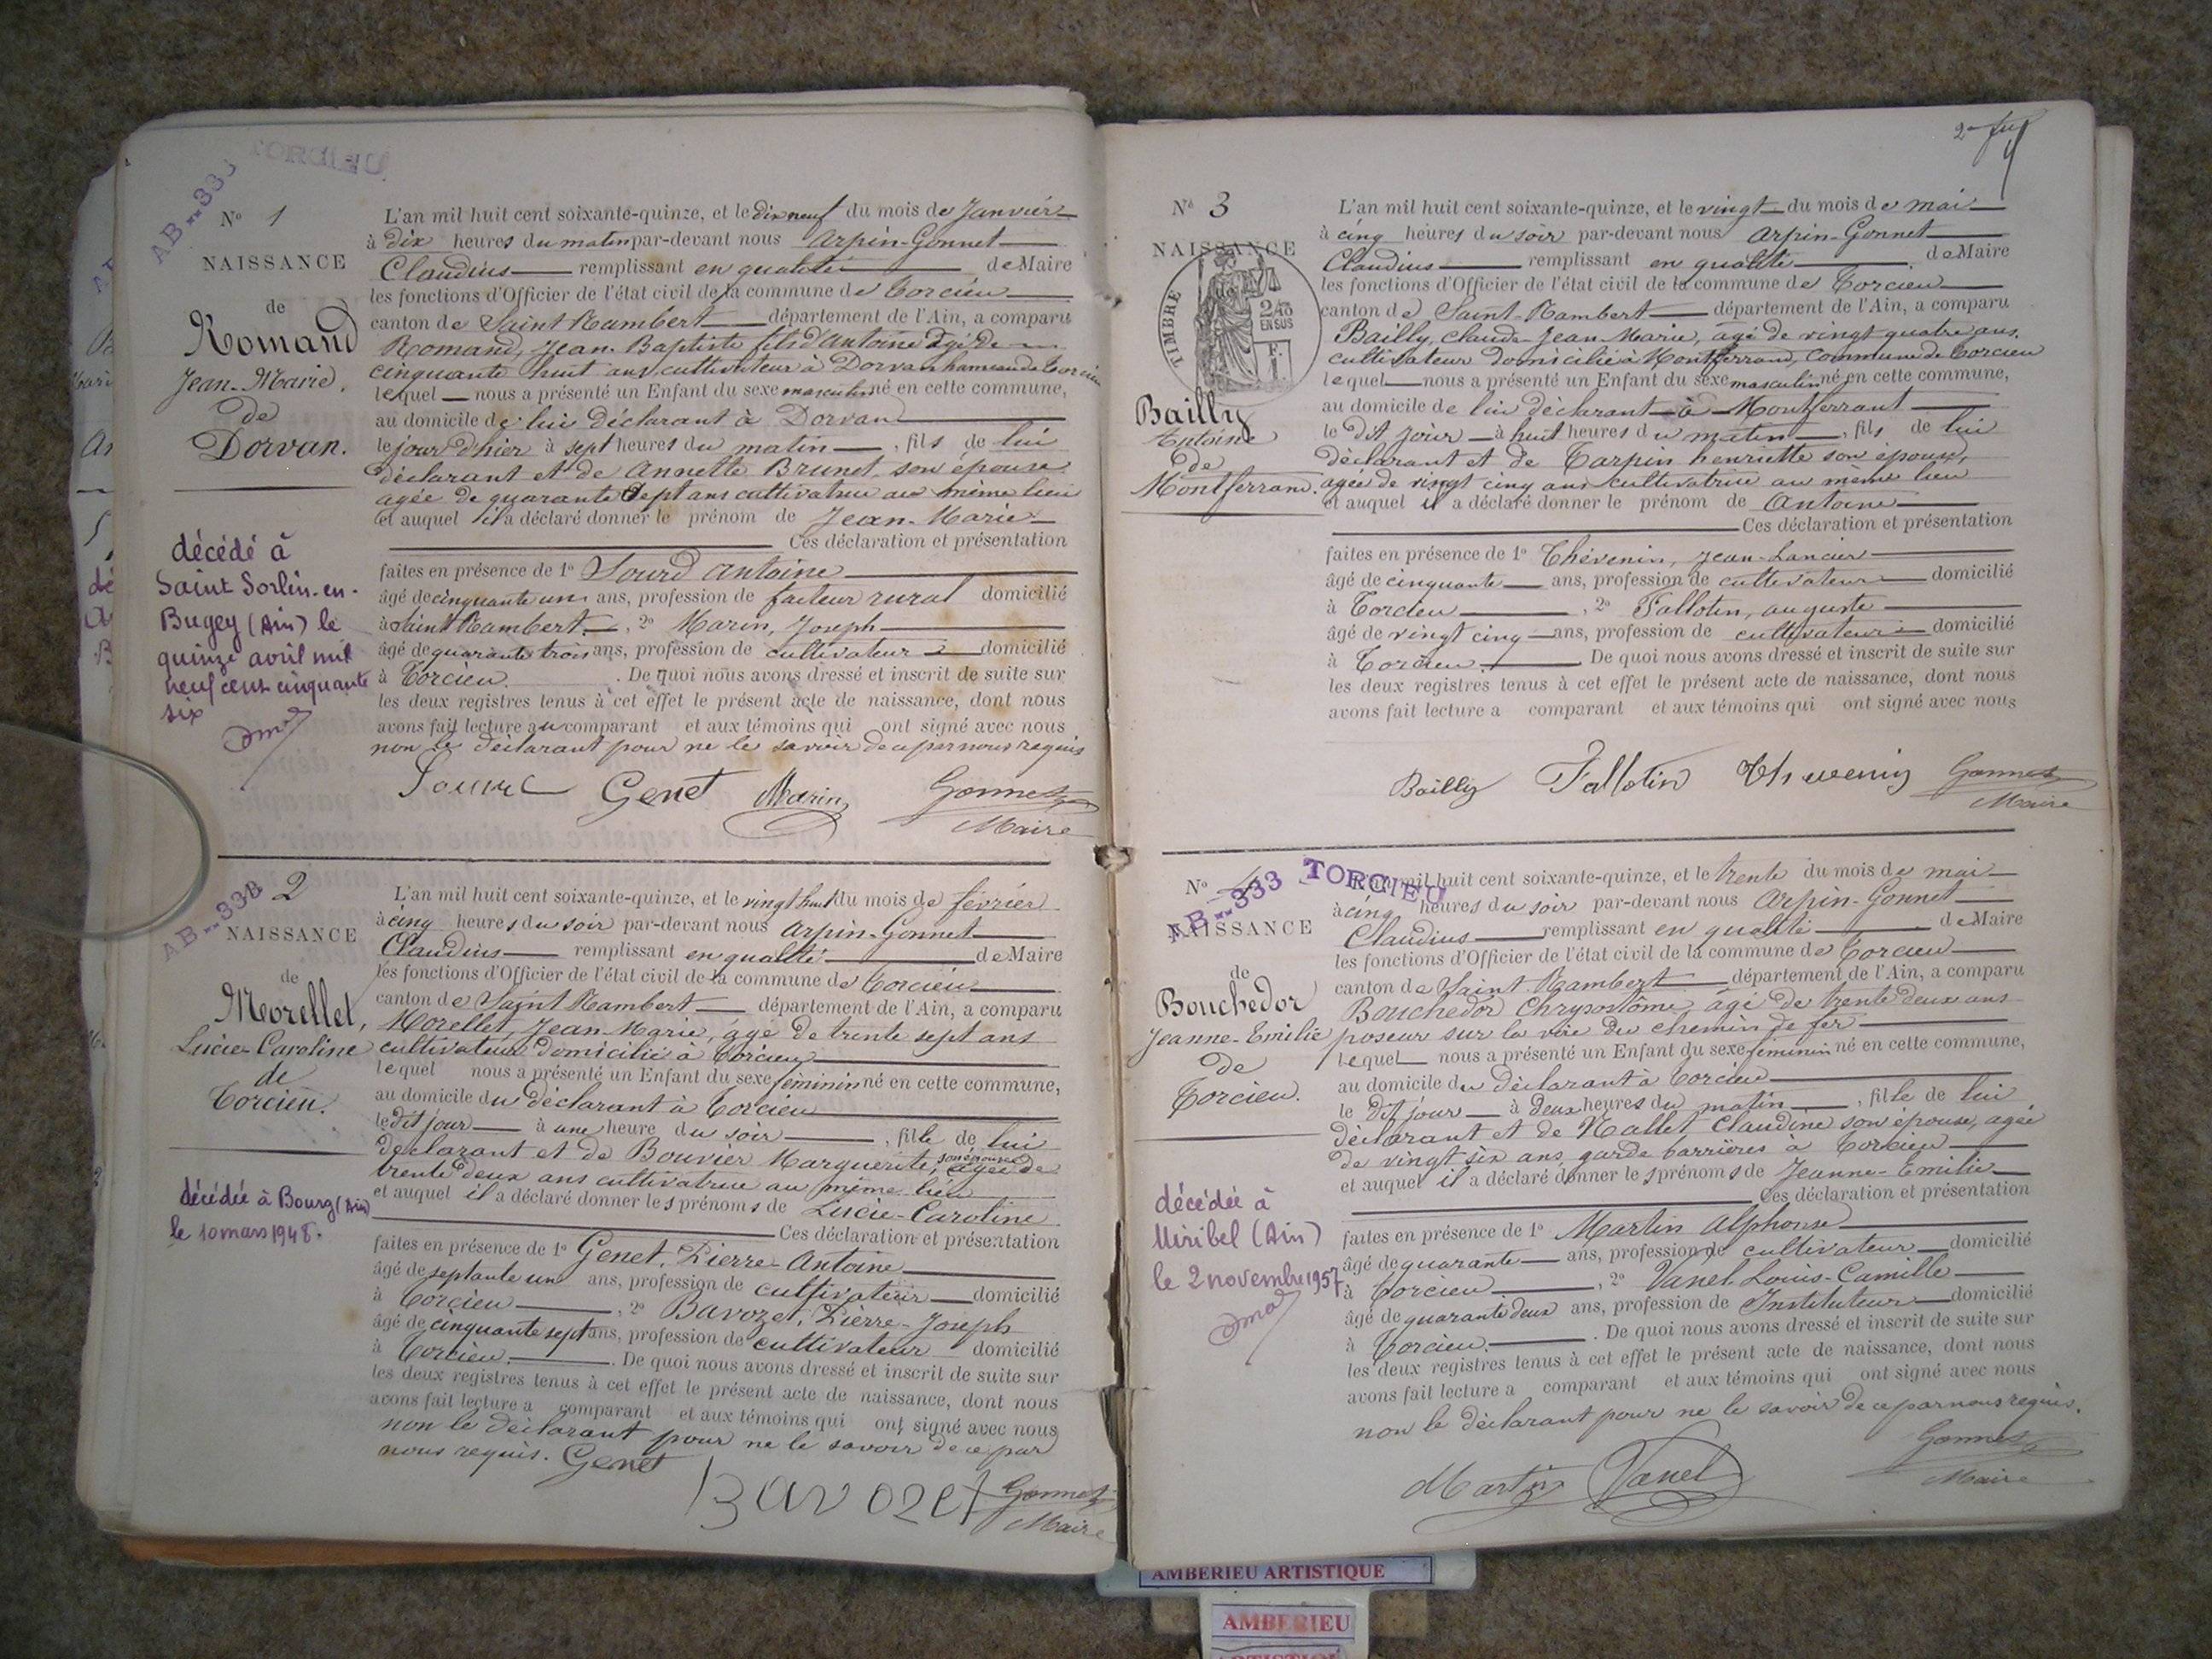 TORCIEU
AB--333
N° 1
NAISSANCE
de
Romand
Jean-Marie,
de
Dorvan.
décédé à
Saint Sorlin-en-
Bugey (Ain) le
quinze avril mil
neuf cent cinquante
six
L'an mil huit cent soixante-quinze, et le dix neuf du mois de Janvier
à dix heures du matin par-devant nous Arpin-Gonnet
Claudius remplissant en qualité de Maire
les fonctions d'Officier de l'état civil de la commune de Torcieu
canton de Saint Rambert département de l'Ain, a comparu
Romand, Jean-Baptiste fils d'Antoine âgé de
cinquante huit ans cultivateur à Dorvan hameau de Torcieu
lequel nous a présenté un Enfant du sexe masculin né en cette commune,
au domicile de lui déclarant à Dorvan
le jour d'hier à sept heures du matin, fils de lui
déclarant et de Annette Brunet son épouse
agée de quarante sept ans cultivatrice au même lieu
et auquel il a déclaré donner le prénom de Jean-Marie
Ces déclaration et présentation
faites en présence de 1° Sourd Antoine
âgé de cinquante un ans, profession de facteur rural domicilié
à Saint Rambert, 2° Marin, Joseph
âgé de quarante trois ans, profession de cultivateur domicilié
à Torcieu. De quoi nous avons dressé et inscrit de suite sur
les deux registres tenus à cet effet le présent acte de naissance, dont nous
avons fait lecture au comparant et aux témoins qui ont signé avec nous
non le déclarant pour ne le savoir de ce par nous requis
Sourd Genet Marin Gonnet
Maire
AB--333 2
NAISSANCE
de
Morellet,
Lucie-Caroline
de
Torcieu.
décédée à Bourg (Ain)
le 10 mars 1948.
L'an mil huit cent soixante-quinze, et le vingt huit du mois de février
à cinq heures du soir par-devant nous Arpin-Gonnet
Claudius remplissant en qualité de Maire
les fonctions d'Officier de l'état civil de la commune de Torcieu
canton de Saint Rambert département de l'Ain, a comparu
Morellet, Jean-Marie, âgé de trente sept ans
cultivateur domicilié à Torcieu
lequel nous a présenté un Enfant du sexe féminin né en cette commune,
au domicile du déclarant à Torcieu
le dit jour à une heure du soir, fille de lui
déclarant et de Bouvier Marguerite, son épouse agée de
trente deux ans cultivatrice au même lieu
et auquel il a déclaré donner les prénoms de Lucie-Caroline
Ces déclaration et présentation
faites en présence de 1° Genet, Pierre-Antoine
âgé de septante un ans, profession de cultivateur domicilié
à Torcieu, 2° Bavozet, Pierre-Joseph
âgé de cinquante sept ans, profession de cultivateur domicilié
à Torcieu. De quoi nous avons dressé et inscrit de suite sur
les deux registres tenus à cet effet le présent acte de naissance, dont nous
avons fait lecture a comparant et aux témoins qui ont signé avec nous
non le déclarant pour ne le savoir de ce par
nous requis. Genet
Bavozet Gonnet
Maire
N° 3
NAISSANCE
de
TIMBRE
2/10
EN SUS
F.
Bailly
Antoine
de
Montferrand.
L'an mil huit cent soixante-quinze, et le vingt du mois de mai
à cinq heures du soir par-devant nous Arpin-Gonnet
Claudius remplissant en qualité de Maire
les fonctions d'Officier de l'état civil de la commune de Torcieu
canton de Saint-Rambert département de l'Ain, a comparu
Bailly, Claude-Jean-Marie, âgé de vingt quatre ans.
cultivateur domicilié à Montferrand, commune de Torcieu
lequel nous a présenté un Enfant du sexe masculin né en cette commune,
au domicile de lui déclarant à Montferrant
le dit jour à huit heures du matin, fils de lui
déclarant et de Tarpin henriette son épouse,
agée de vingt cinq ans cultivatrice au même lieu
et auquel il a déclaré donner le prénom de Antoine
Ces déclaration et présentation
faites en présence de 1° Thévenin, Jean-
âgé de cinquante ans, profession de cultivateur domicilié
à Torcieu, 2° Fallotin, auguste
âgé de vingt cinq ans, profession de cultivateur domicilié
à Torcieu. De quoi nous avons dressé et inscrit de suite sur
les deux registres tenus à cet effet le présent acte de naissance, dont nous
avons fait lecture a comparant et aux témoins qui ont signé avec nous
Bailly Fallotin Thevenin Gonnet
Maire
N° 4
AB--333 TORCIEU
NAISSANCE
de
Bouchedor
Jeanne-Emilie
de
Torcieu.
décédée à
Miribel (Ain)
le 2 novembre 1957
L'an mil huit cent soixante-quinze, et le trente du mois de mai
à cinq heures du soir par-devant nous Arpin-Gonnet
Claudius remplissant en qualité de Maire
les fonctions d'Officier de l'état civil de la commune de Torcieu
canton de Saint-Rambert département de l'Ain, a comparu
Bouchedor Chrysostôme âgé de trente deux ans
poseur sur la voie du chemin de fer
lequel nous a présenté un Enfant du sexe féminin né en cette commune,
au domicile du déclarant à Torcieu
le dit jour à deux heures du matin, fille de lui
déclarant et de Mallet Claudine son épouse, agée
de vingt six ans, garde barrières à Torcieu
et auquel il a déclaré donner les prénoms de Jeanne-Emilie
Ces déclaration et présentation
faites en présence de 1° Martin Alphonse
âgé de quarante ans, profession de cultivateur domicilié
à Torcieu, 2° Vanel Louis-Camille
âgé de quarante deux ans, profession de Instituteur domicilié
à Torcieu. De quoi nous avons dressé et inscrit de suite sur
les deux registres tenus à cet effet le présent acte de naissance, dont nous
avons fait lecture a comparant et aux témoins qui ont signé avec nous
non le déclarant pour ne le savoir de ce par nous requis.
Martin Vanel Gonnet
Maire
AMBERIEU ARTISTIQUE
AMBERIEU
ARTISTIQUE